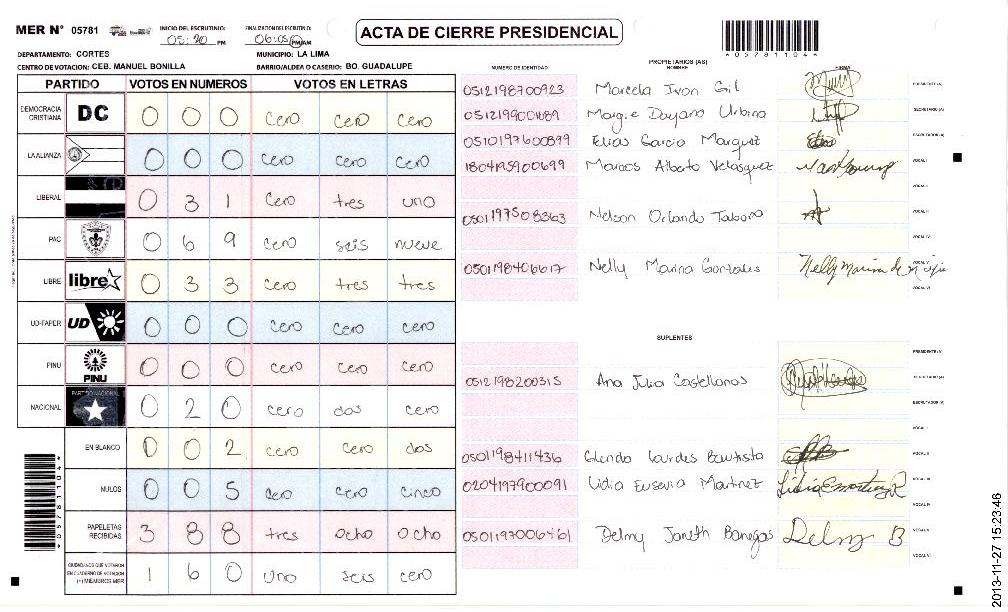 MER N° 05781
INICIO DEL ESCRUTINIO: 05:20 PM
FINALIZACION DEL ESCRUTINIO: 06:05 PM/AM
ACTA DE CIERRE PRESIDENCIAL
*05781104*
DEPARTAMENTO: CORTES
MUNICIPIO: LA LIMA
CENTRO DE VOTACION: CEB. MANUEL BONILLA
BARRIO/ALDEA O CASERIO: BO. GUADALUPE
PARTIDO VOTOS EN NUMEROS VOTOS EN LETRAS
DEMOCRACIA CRISTIANA DC 0 0 0 cero cero cero
LA ALIANZA 0 0 0 cero cero cero
LIBERAL 0 3 1 cero tres uno
PAC 0 6 9 cero seis nueve
LIBRE libre 0 3 3 cero tres tres
UD-FAPER UD 0 0 0 cero cero cero
PINU PINU 0 0 0 cero cero cero
NACIONAL PARTIDO NACIONAL 0 2 0 cero dos cero
EN BLANCO 0 0 2 cero cero dos
NULOS 0 0 5 cero cero cinco
PAPELETAS RECIBIDAS 3 8 8 tres ocho ocho
CIUDADANOS QUE VOTARON EN CUADERNO DE VOTACION (+) MIEMBROS MER 1 6 0 uno seis cero
*05781104*
PROPIETARIOS (AS)
NUMERO DE IDENTIDAD NOMBRE FIRMA
0512198700923 Marcela Ivon Gil PRESIDENTE (A)
Margie Dayano Urbina SECRETARIO (A)
0510197600899 Elias Garcia Marquez ESCRUTADOR (A)
1804195900699 Marcos Alberto Velasquez VOCAL I
VOCAL II
0501197508363 Nelson Orlando Tabora VOCAL III
VOCAL IV
0501198406617 Nelly Marina Gonzales VOCAL V
VOCAL VI
SUPLENTES
PRESIDENTE (A)
0512198200315 Ana Julia Castellanos SECRETARIO (A)
ESCRUTADOR (A)
VOCAL I
0501198411436 Glenda Lourdes Bautista VOCAL II
0204197900091 Lidia Eusevia Martinez VOCAL III
VOCAL IV
0501197006461 Delmy Janeth Banegas Delmy B VOCAL V
VOCAL VI
2013-11-27 15:23:46